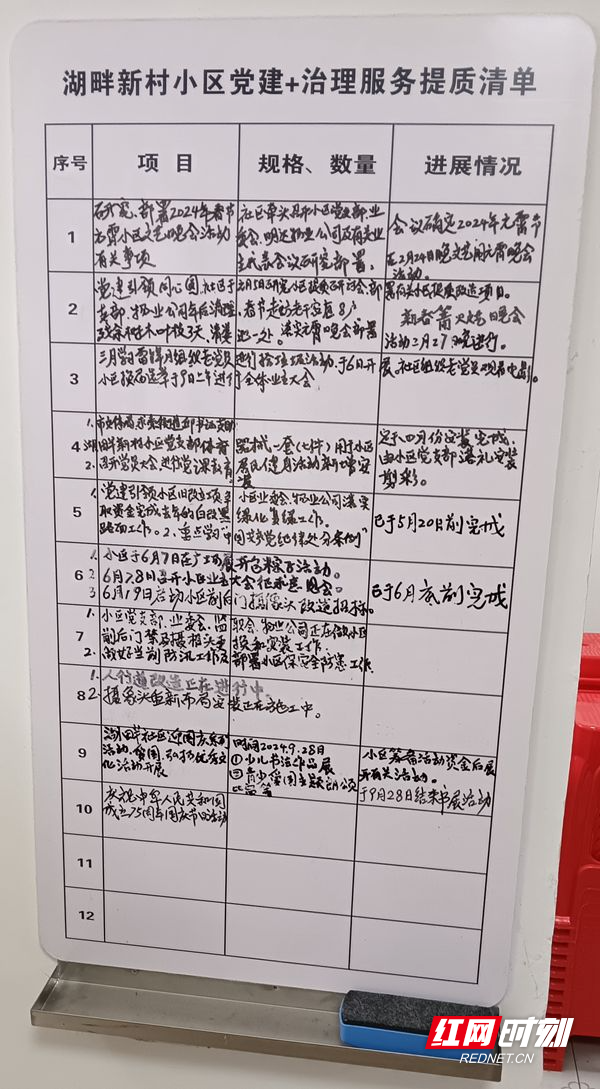 湖畔新村小区党建+治理服务提质清单
序号 项目 规格、数量 进展情况
1
研究、部署2024年春节
元宵小区文艺晚会活动
有关事项
社区牵头召开小区党支部、业
委会、物业公司及有关业
主代表会议研究部署。
会议确定2024年元宵节
在2月24日晚文艺闹元宵晚会
活动。
2
党建引领同心圆,社区于
支部、物业公司年后清理
残余树木叶枝3天,清
春节走访老干家庭8户
一处。落实元宵晚会部署
署有关小区提质改造项目。
新春篝火文艺晚会
活动2月27晚进行。
3
三月学雷锋月组织老党员
小区换届选举于9日上午进行
进行捡垃圾活动,于6日开
全体业主大会
展,社区组织老党员观看电影。
4
湖畔新村小区党支部体育
2.召开党员大会进行党课教育
器械一套(七件)用于小区
居民健身活动
定于四月份安装完成,
由小区党支部落礼安装
剪彩。
5
党建引领小区旧改立项争
取资金完成去年的白改黑
路面工作。2、重点学习“中
小区业委会、物业公司落实
绿化复绿工作。
国共产党纪律处分条例”
已于5月20日前完成
6
1.小区于6月7日在广场展开包粽子活动。
2.6月28日召开小区业主大会征求意见会。
3.6月19日启动小区前后门摄像头改造招标。
已于6月底前完成
7
1.小区党支部、业委会、监
前后门禁及摄相头更
2.做好当前防汛工作及
联会、物业公司正在做小区
换和安装工作。
部署小区保安全防患工作
8
1.人行道改造正在进行中。
2.摄像头重新布局安装正在施工中。
9
湖畔社区迎国庆系列
活动,爱国、弘扬优秀文
化活动开展
时间2024.9.28日
①少儿书法作品展
②青少爱国主题朗诵
比赛等
小区筹备活动资金后展
开有关活动。
于9月28日结束书展活动
10
庆祝中华人民共和国
成立75周年国庆节日活动
11
12
红网时刻
REDNET.CN